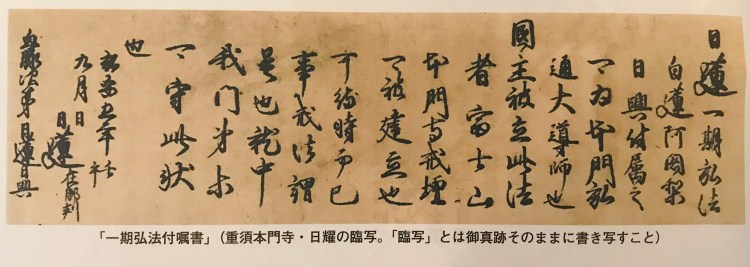 日蓮一期弘法
白蓮阿闍梨
日興付属之
可為本門弘
通大導師也
國主被立此法
者富士山
本門寺戒壇
可被建立也
可待時而已
事戒法謂
是也就中
我門弟等
可守此状
也
弘安五年壬午
九月日
日蓮在御判
血脈次第日蓮日興
「一期弘法付嘱書」（重須本門寺・日耀の臨写。「臨写」とは御真跡そのままに書き写すこと）